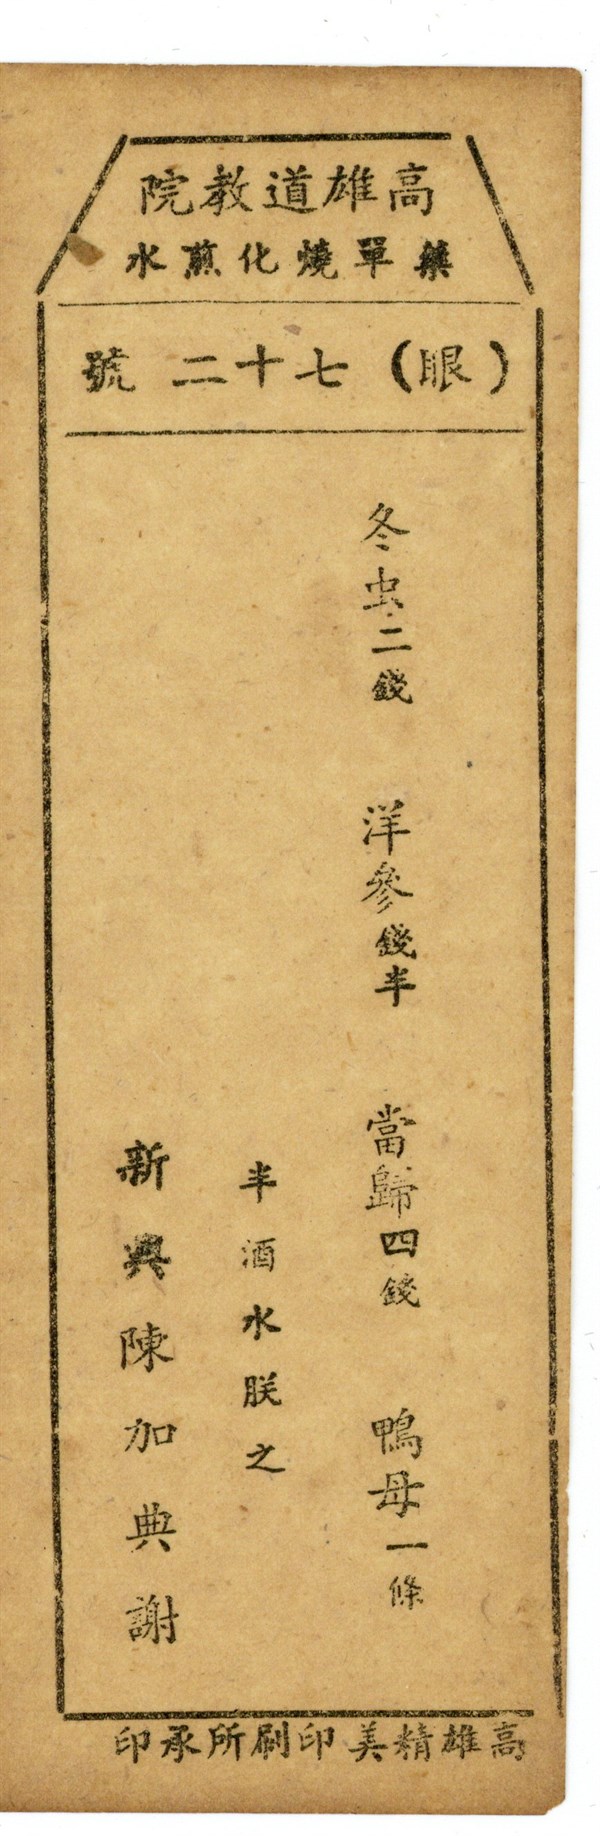 高雄道教院
藥單燒化煎水
（眼）七十二號
冬虫二錢 洋參錢半 當歸四錢 鴨母一條
半酒水朕之
新興陳加典謝
高雄精美印刷所承印